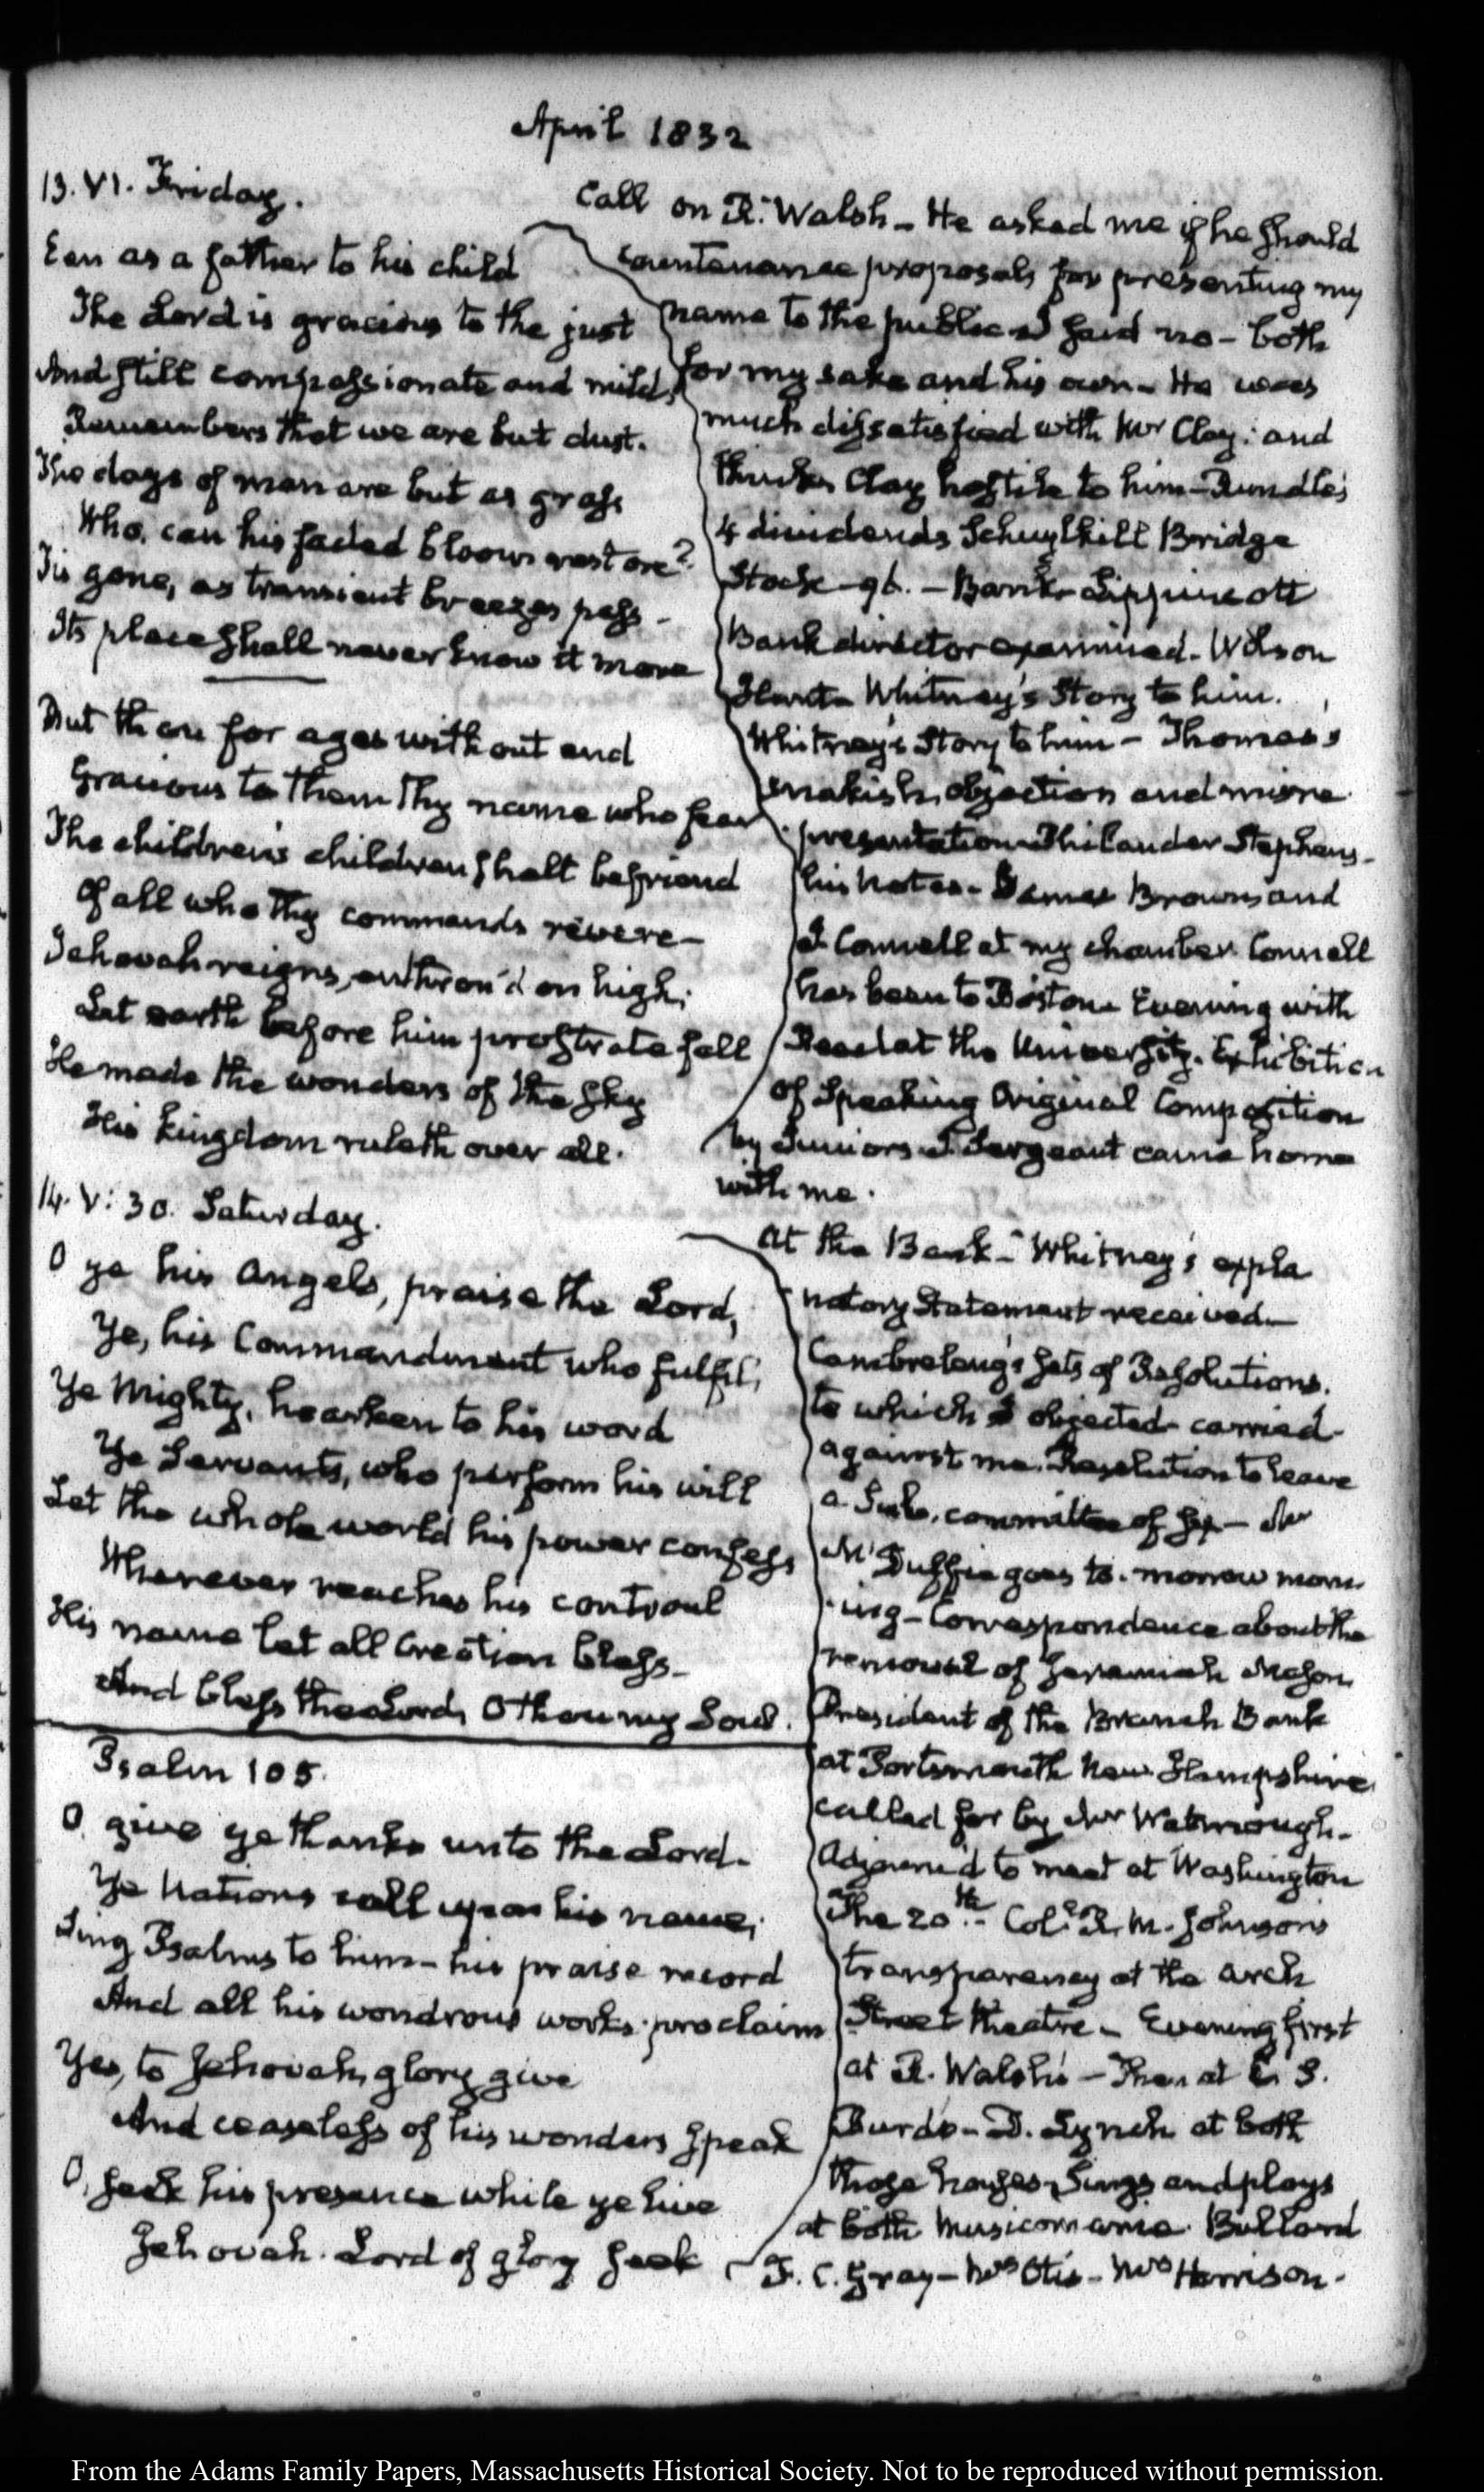 April 1832
13. VI. Friday.
Een as a father to his child
The Lord is gracious to the just
And still compassionate and mild,
Remembers that we are but dust.
The days of man are but as grass
Who, can his faded bloom restore?
Tis gone, as transient breezes pass -
Its place shall never know it more
But thou for ages without end
Gracious to them Thy name who fear
The children's children shalt befriend
Of all who Thy commands revere -
Jehovah reigns, enthron'd on high;
Let earth before him prostrate fall
He made the wonders of the sky
His kingdom ruleth over all.
Call on R. Walsh - He asked me if he should
countenance proposals for presenting my
name to the public I said no - both
for my sake and his own - He was
much dissatisfied with Mr Clay: and
thinks Clay hostile to him - Rundle's
4 dividends Schuylkill Bridge
Stock - 96. - Bank - Lippincott
Bank director examined - Wilson
Hunt - Whitney's Story to him.
Whitney's Story to him - Thomas's
snakish objection and misre
presentation - Philander Stephens -
his notes - James Brown and
J. Connell at my chamber. Connell
has been to Boston - Evening with
at the University. Exhibition
of Speaking Original Composition
by Juniors - J. Sergeant came home
with me.
14. V: 30. Saturday.
O ye his Angels, praise the Lord,
Ye, his Commandment who fulfil;
Ye Mighty, hearken to his word
Ye Servants, who perform his will
Let the whole world his power confess
Wherever reaches his controul
His name let all Creation bless -
And bless the Lord, O thou my Soul.
Psalm 105.
O. give ye thanks unto the Lord -
Ye Nations call upon his name;
Sing Psalms to him - his praise record
And all his wondrous works proclaim
Yes, to Jehovah, glory give
And ceaseless of his wonders speak
O, seek his presence while ye live
Jehovah. Lord of glory seek
At the Bank - Whitney's expla
natory Statement received -
Cambreleng's sets of Resolutions.
to which I objected - carried
against me. Resolution to leave
a Sub. committee of six - Mr
McDuffie goes to-morrow morn
ing - Correspondence about the
removal of Jeremiah Mason
President of the Branch Bank
at Portsmouth New Hampshire
called for by Mr Watmough -
Adjourn'd to meet at Washington
The 20th - Col. R. M. Johnson's
transparency at the Arch
Street Theatre - Evening first
at R. Walsh's - Then at E. S.
Burd's - D. Lynch at both
those houses - Sings and plays
at both Musicomania. Bullard
F. C. Gray - Mrs Otis - Mrs Harrison -
From the Adams Family Papers, Massachusetts Historical Society. Not to be reproduced without permission.